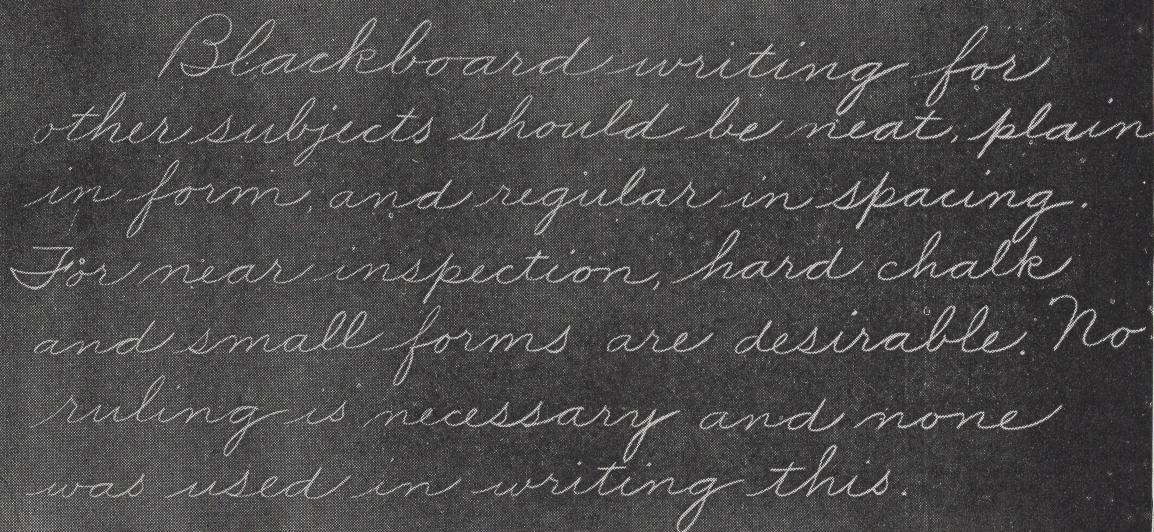 Blackboard writing for
other subjects should be neat, plain
in form, and regular in spacing.
For near inspection, hard chalk
and small forms are desirable. No
ruling is necessary and none
was used in writing this.